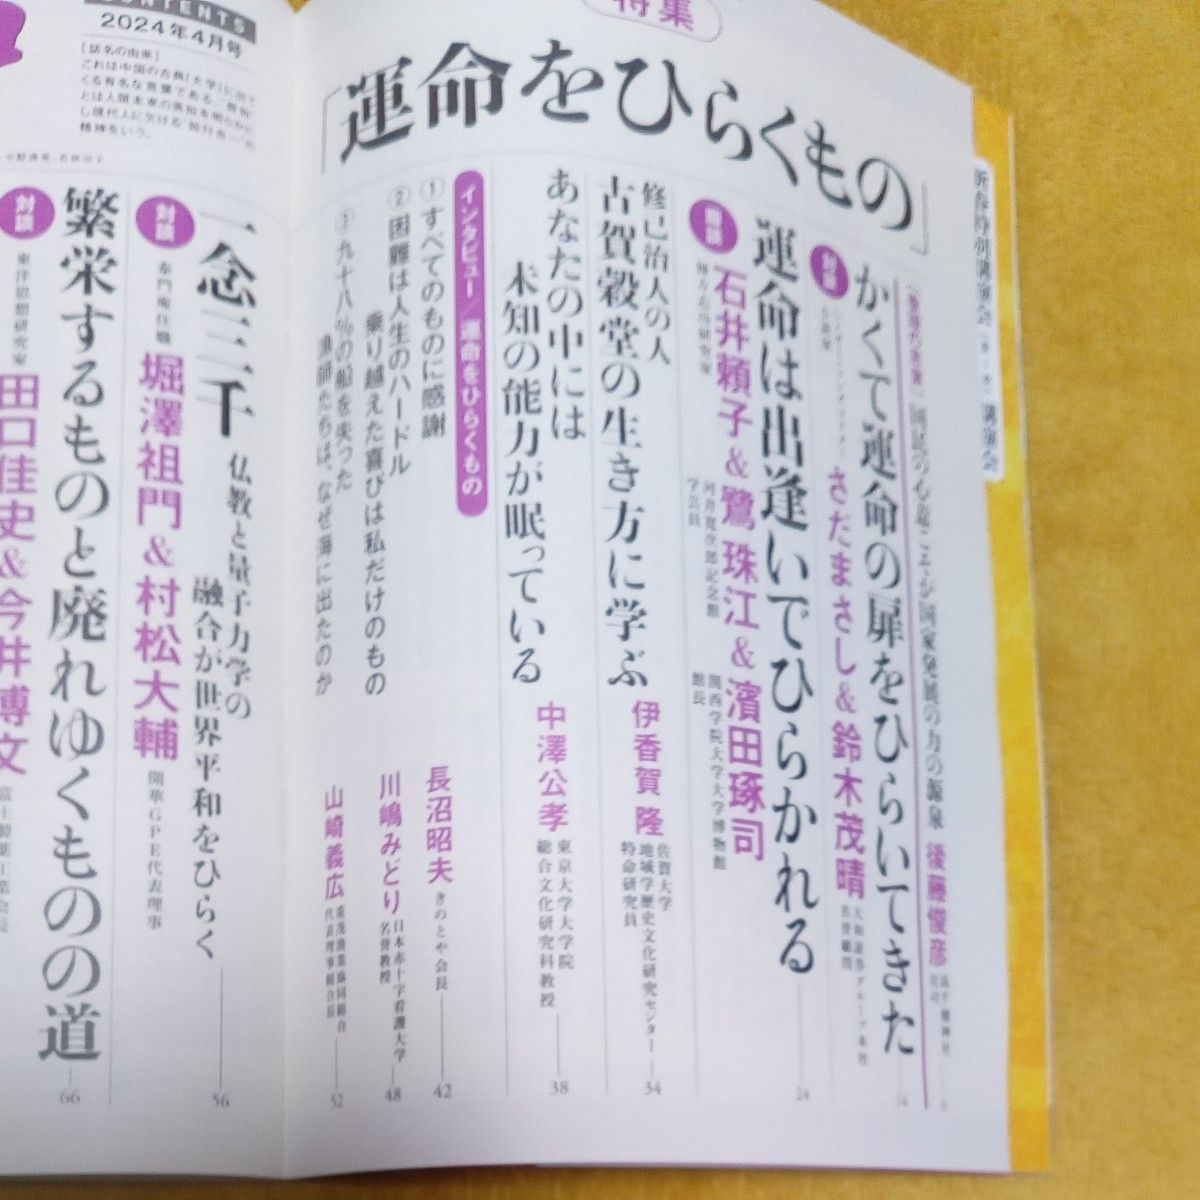 特集
「運命をひらくもの」
後藤俊彦
高千穂神社
宮司
6
対談
かくて運命の扉をひらいてきた
シンガー・ソングライター
小説家
さだまさし&鈴木茂晴
大和証券グループ本社
名誉顧問
14
鼎談
運命は出逢いでひらかれる
石井頼子&鷺 珠江&濱田琢司
棟方志功研究家
河井寛次郎記念館
学芸員
関西学院大学大学博物館
館長
24
修己治人の人
古賀穀堂の生き方に学ぶ
伊香賀 隆
佐賀大学
地域学歴史文化研究センター
特命研究員
34
あなたの中には
未知の能力が眠っている
中澤公孝
東京大学大学院
総合文化研究科教授
38
インタビュー/運命をひらくもの
①すべてのものに感謝
長沼昭夫
きのとや会長
42
②困難は人生のハードル
乗り越えた喜びは私だけのもの
川嶋みどり
日本赤十字看護大学
名誉教授
48
③九十八%の船を失った
漁師たちは、なぜ海に出たのか
山﨑義広
重茂漁業協同組合
代表理事組合長
52
CONTENTS
2024年4月号
[誌名の由来]
対談
一念三千
仏教と量子力学の
融合が世界平和をひらく
泰門庵住職
堀澤祖門&村松大輔
開華GPE代表理事
56
対談
繁栄するものと廃れゆくものの道
東洋思想研究家
田口佳史&今井博文
富士製薬工業会長
66